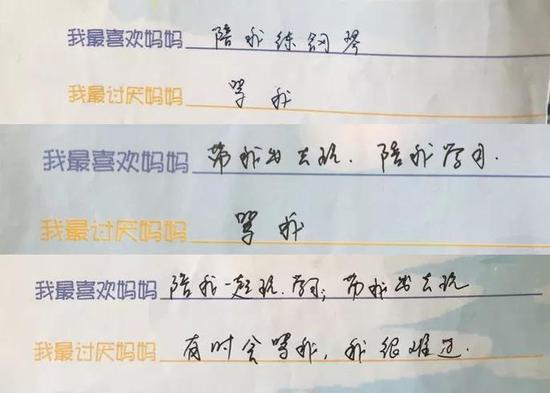 我最喜欢妈妈 陪我练钢琴
我最讨厌妈妈 骂我
我最喜欢妈妈 带我出去玩. 陪我学习.
我最讨厌妈妈 骂我
我最喜欢妈妈 陪我一起玩.学习;带我出去玩
我最讨厌妈妈 有时会骂我,我很难过.